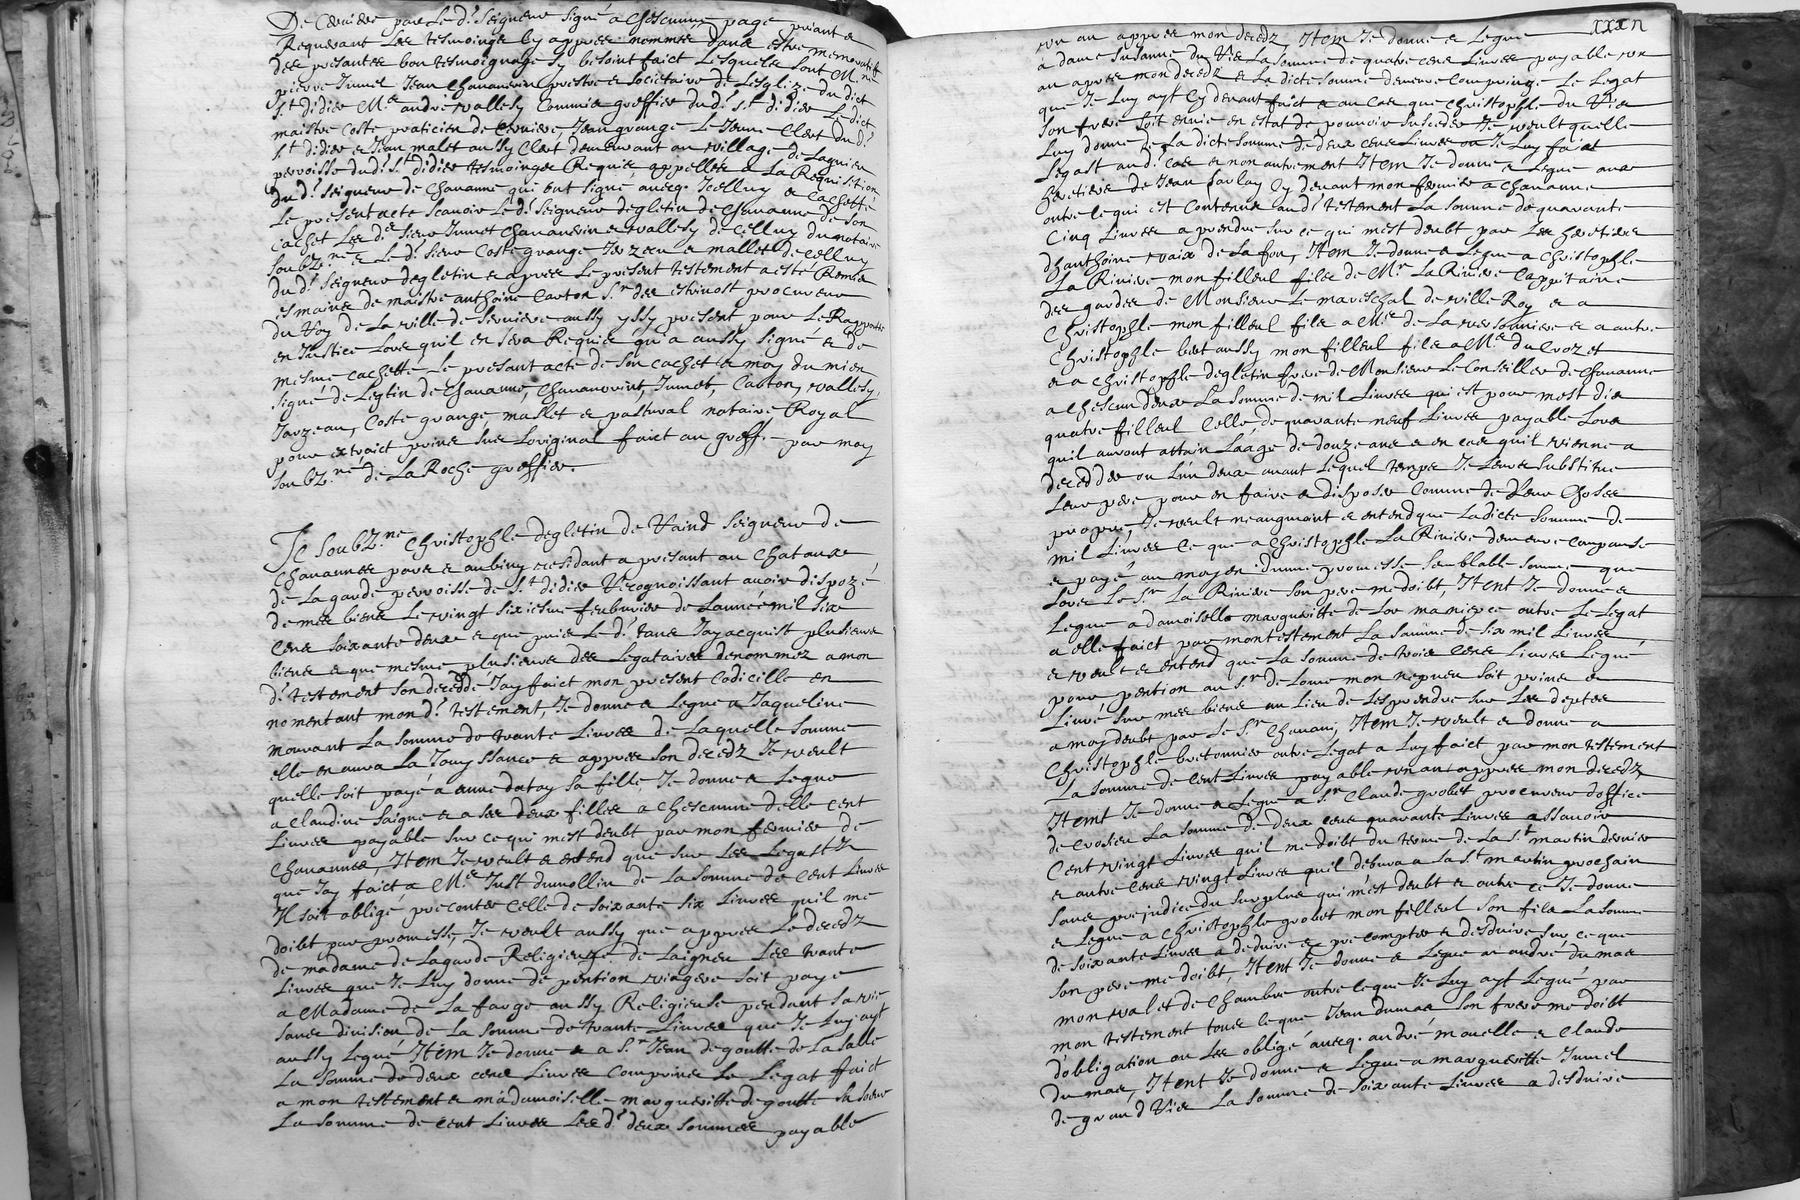 De Cerviere par Le d.t Seigneur signé a chescunne page priant &
Requerant Les tesmoinge Cy appres nommés dans estre memoratifs
des presantes bon tesmoignage sy besoint faict Lesquels sont M.re
pierre Jumel Jean Chananvrin prestre & societaire de Lesglize du dict
S.t didier M.e andre vallesy Commis greffier du d.t S.t didier Le dict
maistre Coste praticien de Cerviere Jean grange Le Jeune Clerc du d.t
S.t didier & Jean malet aussy Clerc demeurant au village de Lagnier
perroisse du d.t S.t didier tesmoings Requis appelles a La Requisition
du d.t Seigneur de Chananne qui ont signé avecq. Icelluy & cachetté
Le present acte scavoir Le d.t Seigneur degletin de Chananne de son
Cachet Les d.s sieur Jumet Chananvrin & vallesy de Celluy du notaire
Soubz.né & Le d.t sieur Coste grange Jarzeau & mallet de celluy
du d.t Seigneur degletin & apprés Le present testement a esté Remis
es mains de maistre anthoine Carton S.r des estivost procureur
du Roy de La ville de Serviere aussy yssy present pour Le Rapporter
en Justice Lors quil en sera Requis qu'a aussy signé & de
mesme cachetté Le presant acte de son cachet & moy du mien
signé de Legtin de Chananne, Chananvrint, Jumet, Carton, vallesy,
Jarzeau, Coste grange mallet & pasturat notaire Royal
pour extraict prins sur Loriginal faict au greffe par moy
soubz.né de La Roche greffier.
Je soubz.né Christophle degletin de Haind Seigneur de
Chanannes pore & aubiny residant a présant au Chataux
de La garde perroisse de S.t didier Recognoissant avoir dispozé
de mes biens Le vingt sixiesme feubvrier de Lannéemil six
cens soixante deux & que puis Le d.t tans Jay acquist plusieurs
biens & que mesme plusieurs des Legataires denommez a mon
d.t testement son decedde Jay faict mon present codicille en
nomentant mon d.t testement, Je donne & Legue a Jaqueline
mourant La somme de trante Livres de Laquelle somme
elle en aura La Jouyssance & appres son decedz Je veult
quelle soit payé a anne dataz sa fille Je donne & Legue
a claudine saigne & a ses deux filles a chescunne delle cent
Livres payable sur cequi mest deubt par mon fermier de
Chanannes, Item Je veult & entend que sur Les Legastz
que Jay faict a M.e Just dumollin de La somme de Cent Livres
Il soit obligé preconter Celle de soixante six Livres quil me
doibt par promesse, Je veult aussy que appres Le decedz
de madame de Lagarde Religieuse de Laigneu Les trante
Livres que Je Luy donne de pention viagere soit paye
a Madame de La farge aussy Religieuse pendant sa vie
sans division de La somme de trante Livres que Je Luy ayt
aussy Legué Item Je donne & a S.r Jean de goutte de La Salle
La somme de deux cens Livres comprins Le Legat faict
a mon testement & madamoiselle margueritte de goutte sa soeur
La somme de cent Livres Les d.t deux sommes payable
xxxn
vn an appres mon decedz, Item Je donne & Legue
a dame susanne du Vie La somme de quatre cens Livres payable vn
an apres mon decedz & La dicte somme demeure comprinze Le Legat
que Je Luy ayt Cy devant faict & au cas que christophle du Vie
son frere soit envie en estat de pouvoir succeder Je veult quelle
Luy donne de La dicte somme de deux cens Livres ou Je Luy faict
Legast aud.t cas & non autrement Item Je donne & Legue aux
heretiers de Jean Cy devant mon fermier a chananne
outre le qui est Contenu aud.t testement La somme de quarante
Cinq Livres a prendre sur ce qui mest deubt par Les heretiers
danthoine vaix de La fon, Item Je donne & Legue a Christophle
La Riviere mon filleul fils de M.r La Riviere Cappitaine
des gardes de Monsieur Le mareschal de ville Roy & a
Christophle mon filleul fils a M.r de La versonniere & a autre
Christophle bert aussy mon filleul fils a M.e du Crozet
& a christophle degletin frere de Monsieur Le Conseiller de Chananne
a chescun deux La somme de mil Livres qui est pour mest dix
quatre filleul Celle de quarante neuf Livres payable Lors
quil auront attain Laage de douze ans & en cas quil vienne a
decedder ou Lun deux avant Lequel temps Je Leurs substitue
Leur pere pour en faire & disposer Comme de Leur Choses
propre Je veult neaugmoint & entend que Ladicte somme de
mil Livres Ce que a Christophle La Riviere demeure compansé
& payé au moyen dunne promesse semblable somme que
Lover Le S.r La Riviere son pere me doibt, Itent Je donne &
Legue a damoiselle marguerite de Lor maniepce outre Le Legat
a elle faict par mon testement La somme de six mil Livres
& veult & entend que La somme de trois cens Livres Legué
pour pention au S.r de Loire mon nepveu soit prins &
Livré sur mes biens au Lieu de Lesprendre sur Les deptes
a moy deubt par Le S.r Chavani, Item Je veult & donne a
Christophle bretonnier outre Legat a Luy faict par mon testement
La somme de cent Livres payable vn an appres mon decedz
Itemt Je donne & Legue a S.r Claude grobet procureur doffice
de Crosieu La somme de deux cens quarante Livres assavoir
Cent vingt Livres quil me doibt du terme de La S.t martin dernier
& autre cens vingt Livres quil debvra a La S.t martin prochain
sans prejudice du surplus qui mest deubt & outre ce Je donne
& Legue a christophle grobet mon filleul son fils La somme
de soixante Livres a deduire & precompter & desduire sur ce que
son pere me doibt, Itent Je donne & Legue a andré du mas
mon valet de chambre outre ceque Je Luy ayt Legué par
mon testement tous ce que Jean dumas son frere me doibt
dobligation ou Les obligé avecq. andré mourelle & Claude
du mas, Itent Je donne & Legue a marguerite Jumel
de grand Vie La somme de soixante Livres a desduire